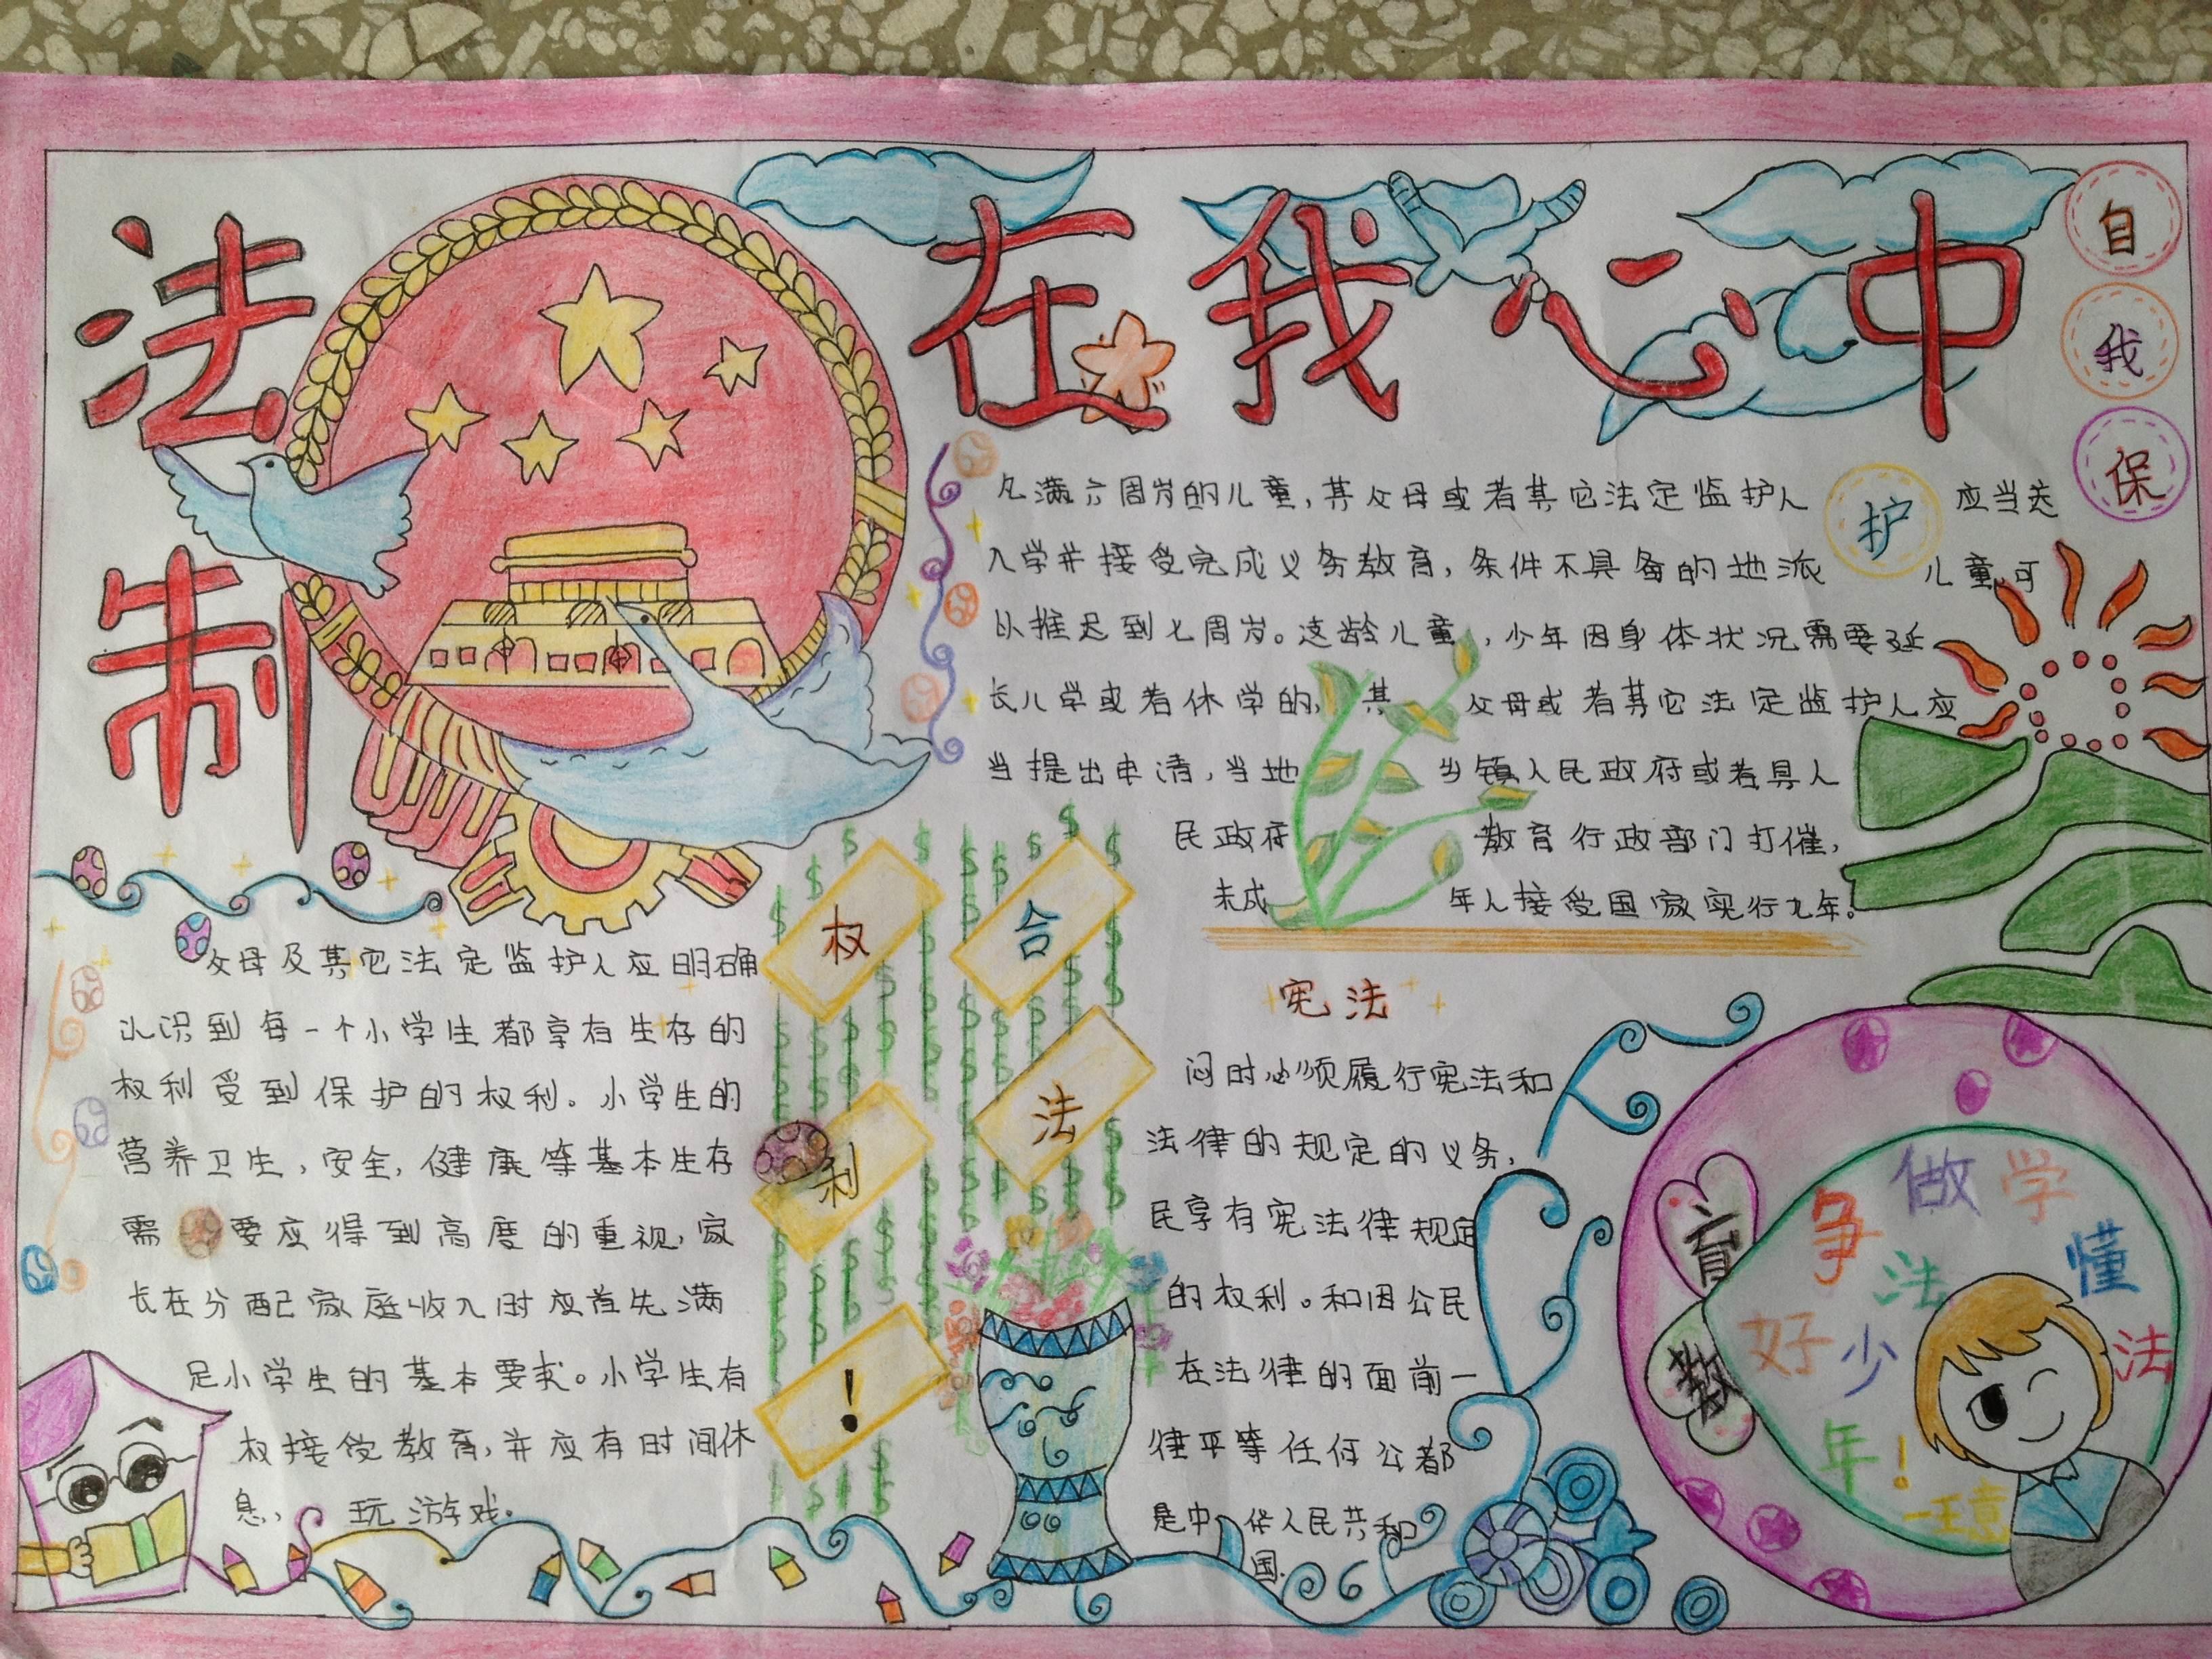 法制
在我心中
自我保护
凡满六周岁的儿童,其父母或者其它法定监护人应当送
入学并接受完成义务教育,条件不具备的地派儿童,可
以推迟到七周岁。这龄儿童,少年因身体状况需要延
长儿学或者休学的,其父母或者其它法定监护人应
当提出申请,当地乡镇人民政府或者具人
民政府教育行政部门打催,
未成年人接受国家实行九年。
父母及其它法定监护人应明确
认识到每一个小学生都享有生存的
权利受到保护的权利。小学生的
营养卫生,安全,健康等基本生存
需要应得到高度的重视,家
长在分配家庭收入时应首先满
足小学生的基本要求。小学生有
权接受教育,并应有时间休
息,玩游戏。
权利!
合法
宪法
闷时必须履行宪法和
法律的规定的义务,
民享有宪法律规定
的权利。和因公民
在法律的面前一
律平等任何公都
是中华人民共和
国.
教育
争做学法懂法
好少年!